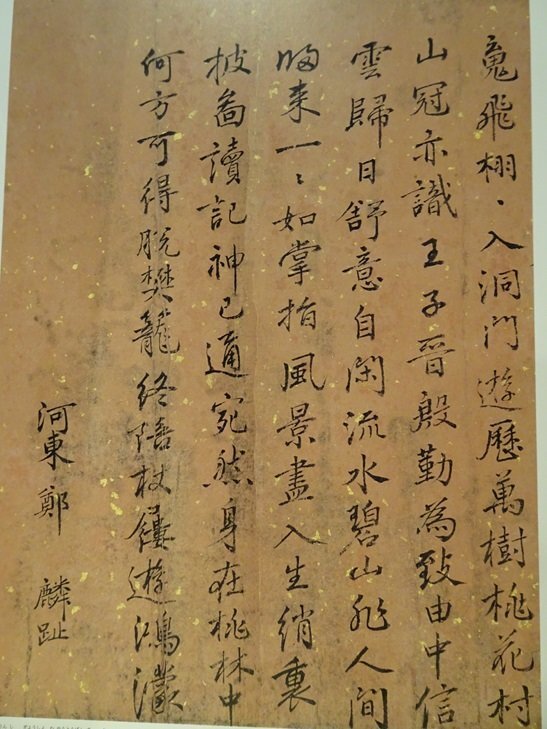 魂飛栩〻入洞門遊歷萬樹桃花村
山冠亦識王子晉殷勤為致由中信
雲歸日舒意自閑流水碧山非人間
歸来一〻如掌指風景盡入生綃裏
披啚讀記神已通宛然身在桃林中
何方可得脫樊籠終陪杖屨遊鴻濛
河東鄭 麟趾